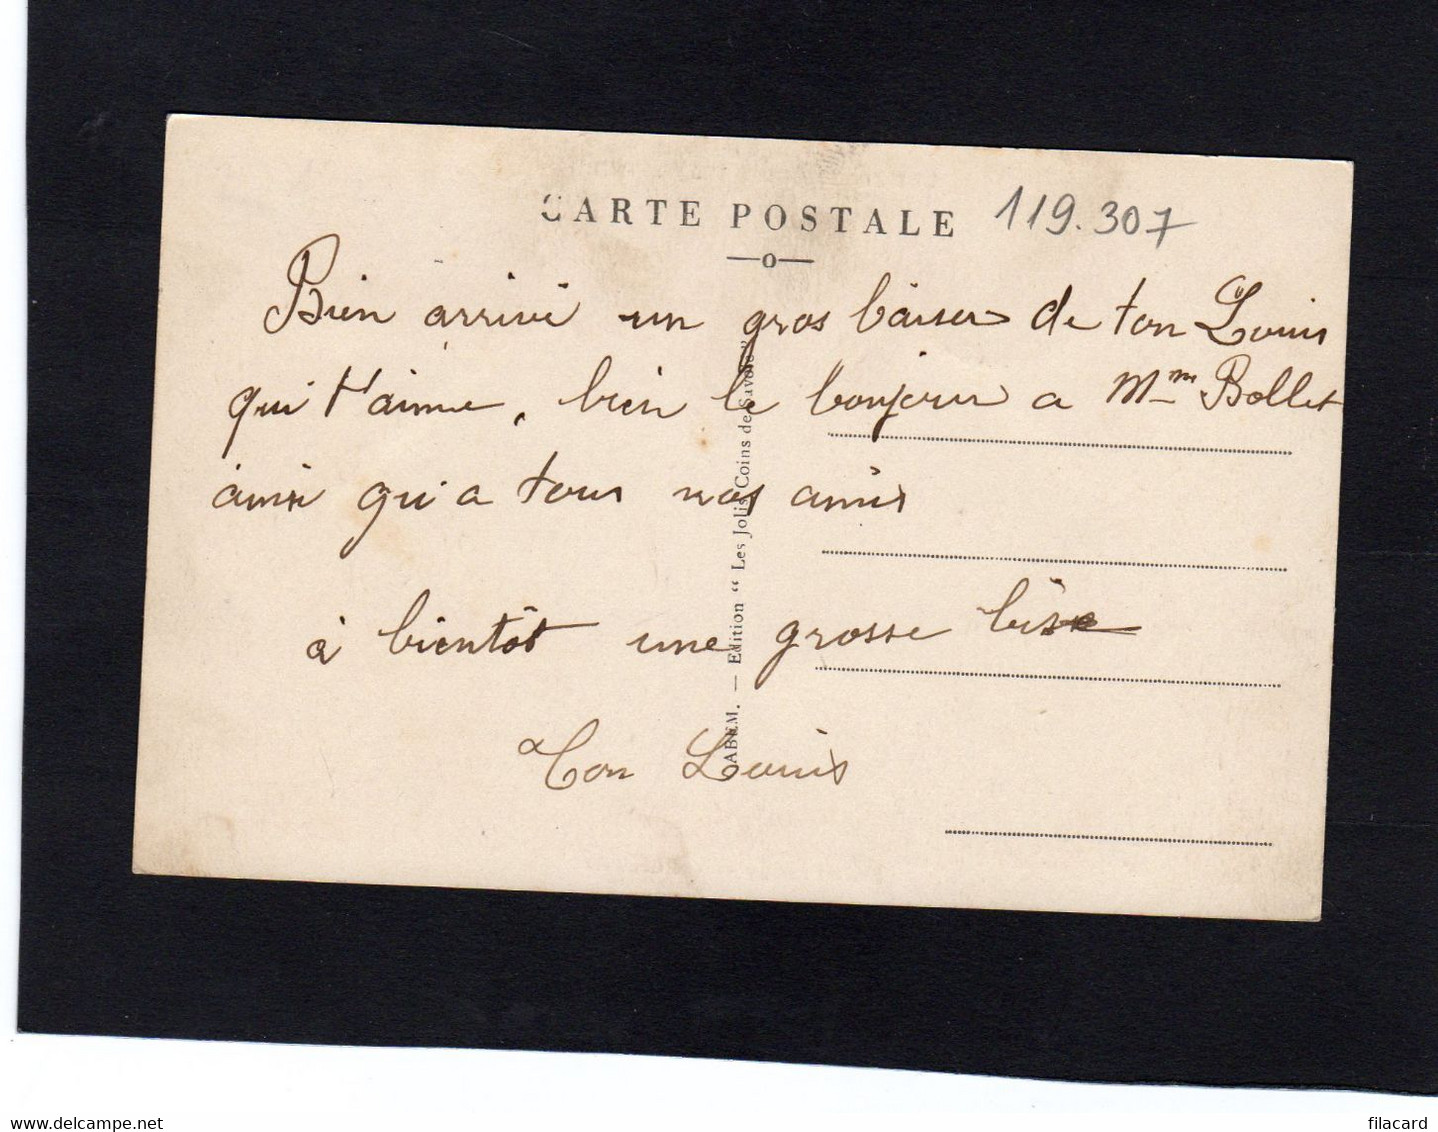 CARTE POSTALE
119.307
—o—
Bien arrivé un gros baiser de ton Louis
qui t'aime, bien le bonjour a Mme Bollet
ainsi qui a tous nos amis
à bientôt une grosse bise
Ton Louis
ABEM. — Edition “ Les Jolis Coins de Savoie ”
www.delcampe.net
filacard